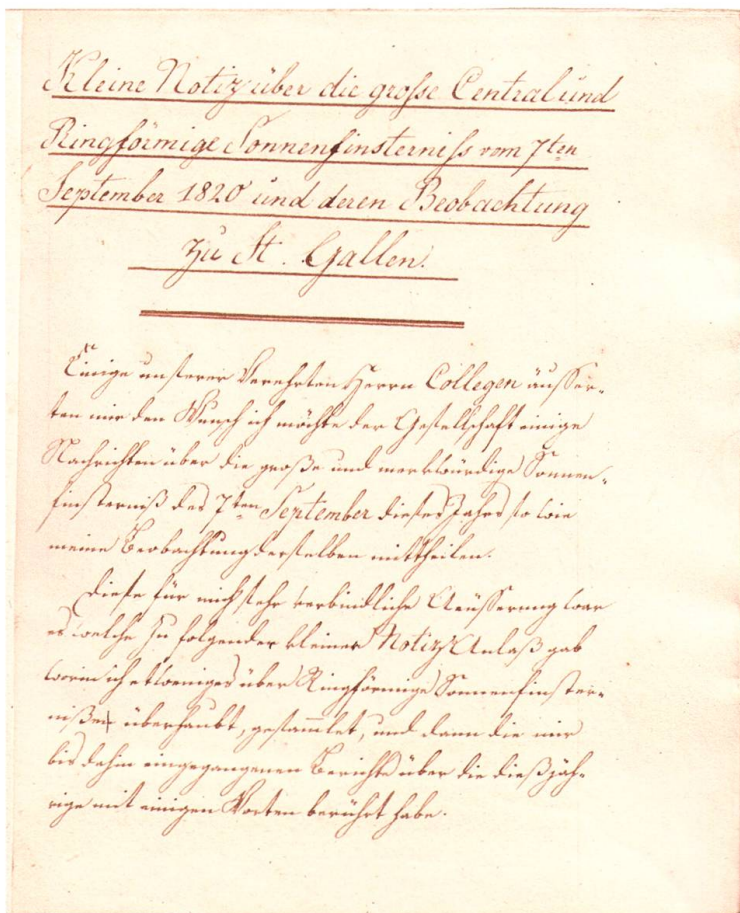 Kleine Notiz über die grosse Central und
Ringförmige Sonnenfinsterniss vom 7ten
September 1820 und deren Beobachtung
zu St. Gallen.
Einige unserer Verehrten Herrn Collegen äusser-
ten mir den Wunsch ich möchte der Gesellschaft einige
Nachrichten über die große und merkwürdige Sonnen-
finsterniß des 7ten September dieses Jahrs so wie
meine Beobachtung derselben mittheilen.
Diese für mich sehr verbindliche Aeüsserung war
es welche zu folgender kleiner Notiz Anlaß gab
worin ich etweniges über Ringförmige Sonnenfinster-
nißen überhaubt, gesammlet, und dann die mir
bis dahin eingegangenen Berichte über die dießjäh-
rige mit einigen Worten berührt habe.